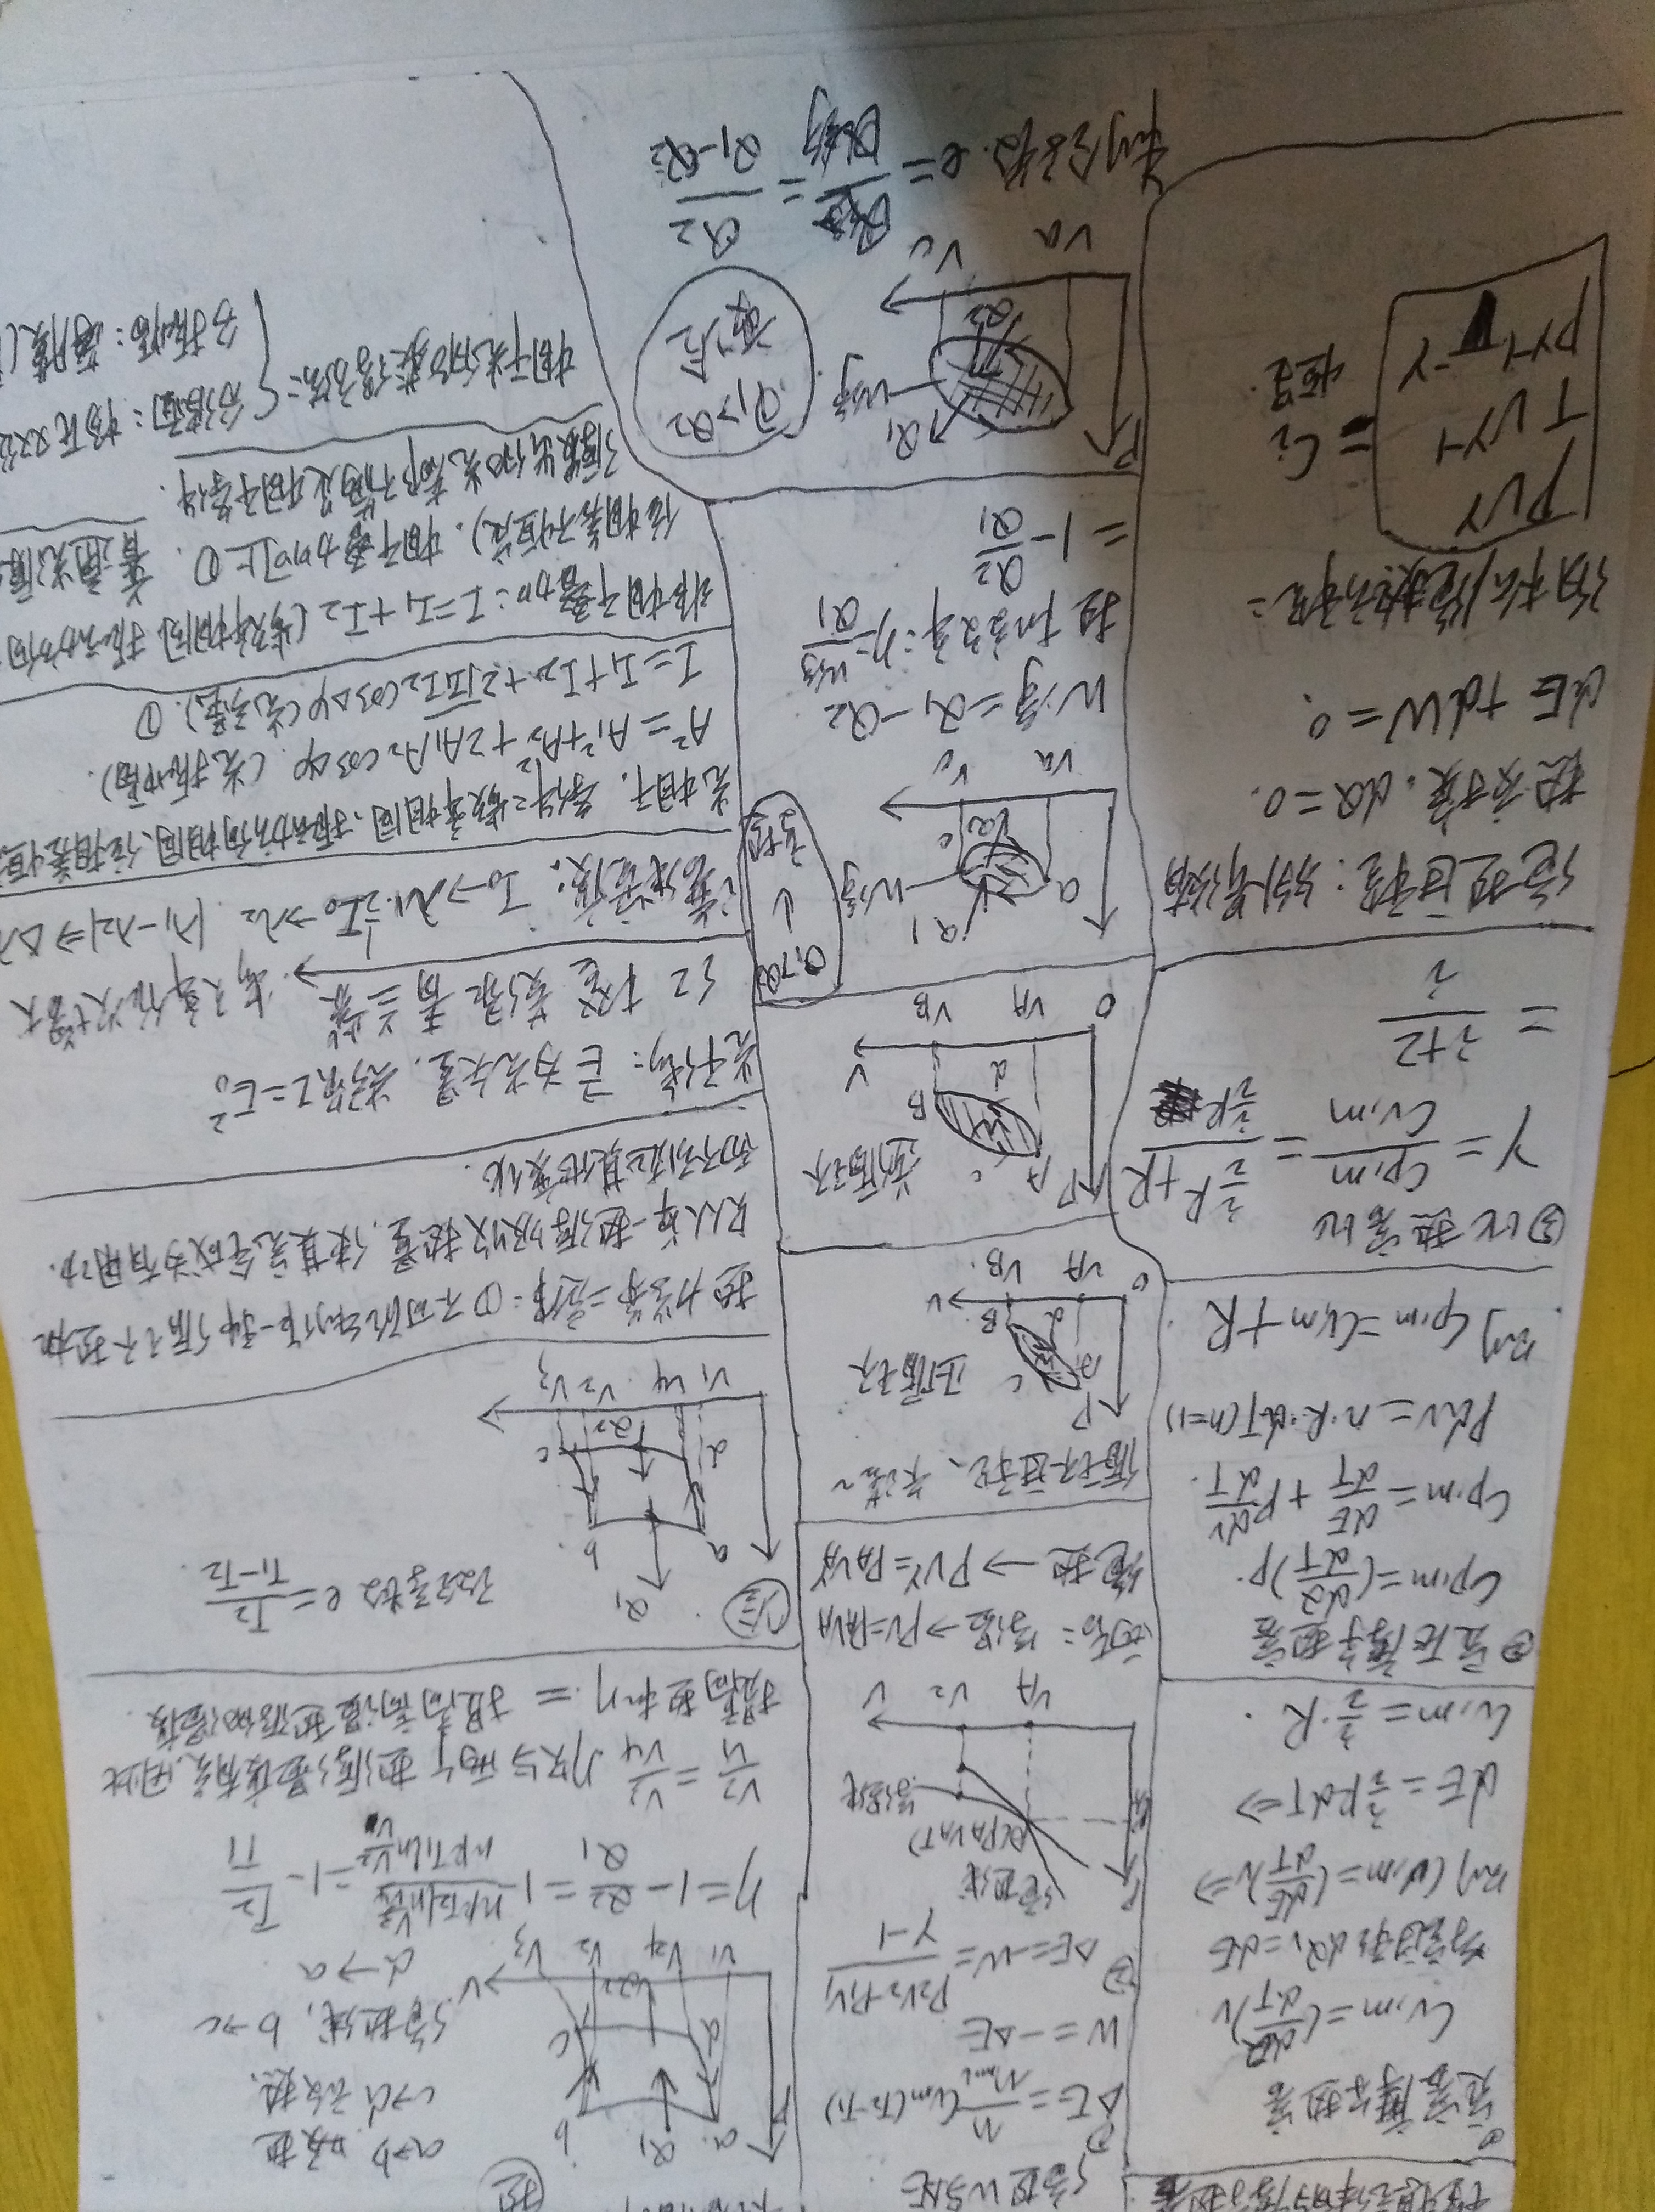 理想气体的摩尔热容
①
定容摩尔热容
Cv,m=(dQ/dT)v
等容过程dQv=dE
则Cv,m=(dE/dT)v⇒
dE=i/2RdT⇒
Cv,m=i/2·R.
②定压摩尔热容
Cp,m=(dQ/dT)p.
Cp,m=dE/dT+Pdv/dT.
Pdv=n·R·dT(n=1)
则Cp,m=Cv,m+R.
③比热容比
γ=Cp,m/Cv,m=(i/2R+R)/(i/2R)
=(i+2)/i
绝热过程:与外界没有
热交换.dQ=0.
dE+dW=0.
泊松/绝热方程:
PV^γ
TV^γ-1
P^γ-1T^-γ
=Ci
恒量.
绝热W与ΔE
①
ΔE=m/Mmol Cv,m(T2-T1)
W=-ΔE
②
ΔE=-W=(P2V2-P1V1)/(γ-1)
P
绝热线
A(PAVAT)
PA
等温线
VA V2 V
两者:等温→PV=PAVA
绝热→PV^γ=PAVA^γ
循环过程、卡诺~
P
A c 正循环
W
d B
O VA VB. V
P A c 逆循环
W
B
d V
O VA VB
Q1
a W净
Q2 c
Va Vc
Q1>Q2
↓
热
W净=Q1-Q2
热机效率:η=W净/Q1
=1-Q2/Q1
P Q1
W净.
Q2
Va Vc
Q1>Q2
制冷
制冷系数.e=Q2/(Q1-Q2)
热
P a Q1 b
d c
Q2 V
V1 V4 V2 V3
a→b 吸热
c→d 放热.
绝热线,b→c
d→a
η=1-Q2/Q1=1-(nRT2lnV3/V4)/(nRT1lnV2/V1)=1-T2/T1
V2/V1=V3/V4.η只与两个热源温度有关,因此
提高热机η.=提高高温热源的温度.
冷
Q1
a b
d c
Q2
V1 V4 V2 V3
致冷系数e=T2/(T1-T2).
热力学第二定律:①不可能制作一种循环热机
只从单一热源吸收热量,使其完全成为有用功.
而不引起其他变化.
光干涉:E⃗为光矢量,光强I=E0²
红橙黄绿青兰紫→频率依次增大
谱线宽度:I0→λ1.1/2I0→λ2.|λ1-λ2|⇒Δλ
光相干.条件:频率相同、振动方向相同、位相差恒
A²=A1²+A2²+2A1A2cosΔφ.(光振幅).
I=I1+I2+2√I1I2cosΔφ(光强).①
非相干叠加:I=I1+I2(频率相同.振动方向
位相差不恒定).相干叠加同上①.普通光源
源发出的光都不满足相干条件.
相干光的获得方法:{分波面:杨氏双
分振幅:薄膜(